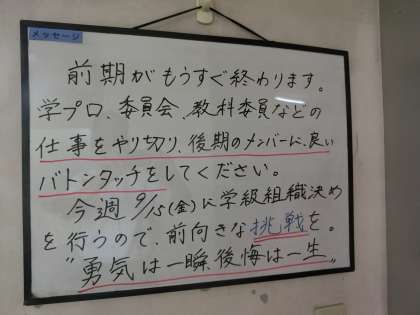 メッセージ
前期がもうすぐ終わります。
学プロ、委員会、教科委員などの
仕事をやり切り、後期のメンバーに、良い
バトンタッチをしてください。
今週9/15(金)に学級組織決め
を行うので、前向きな挑戦を。
"勇気は一瞬、後悔は一生"